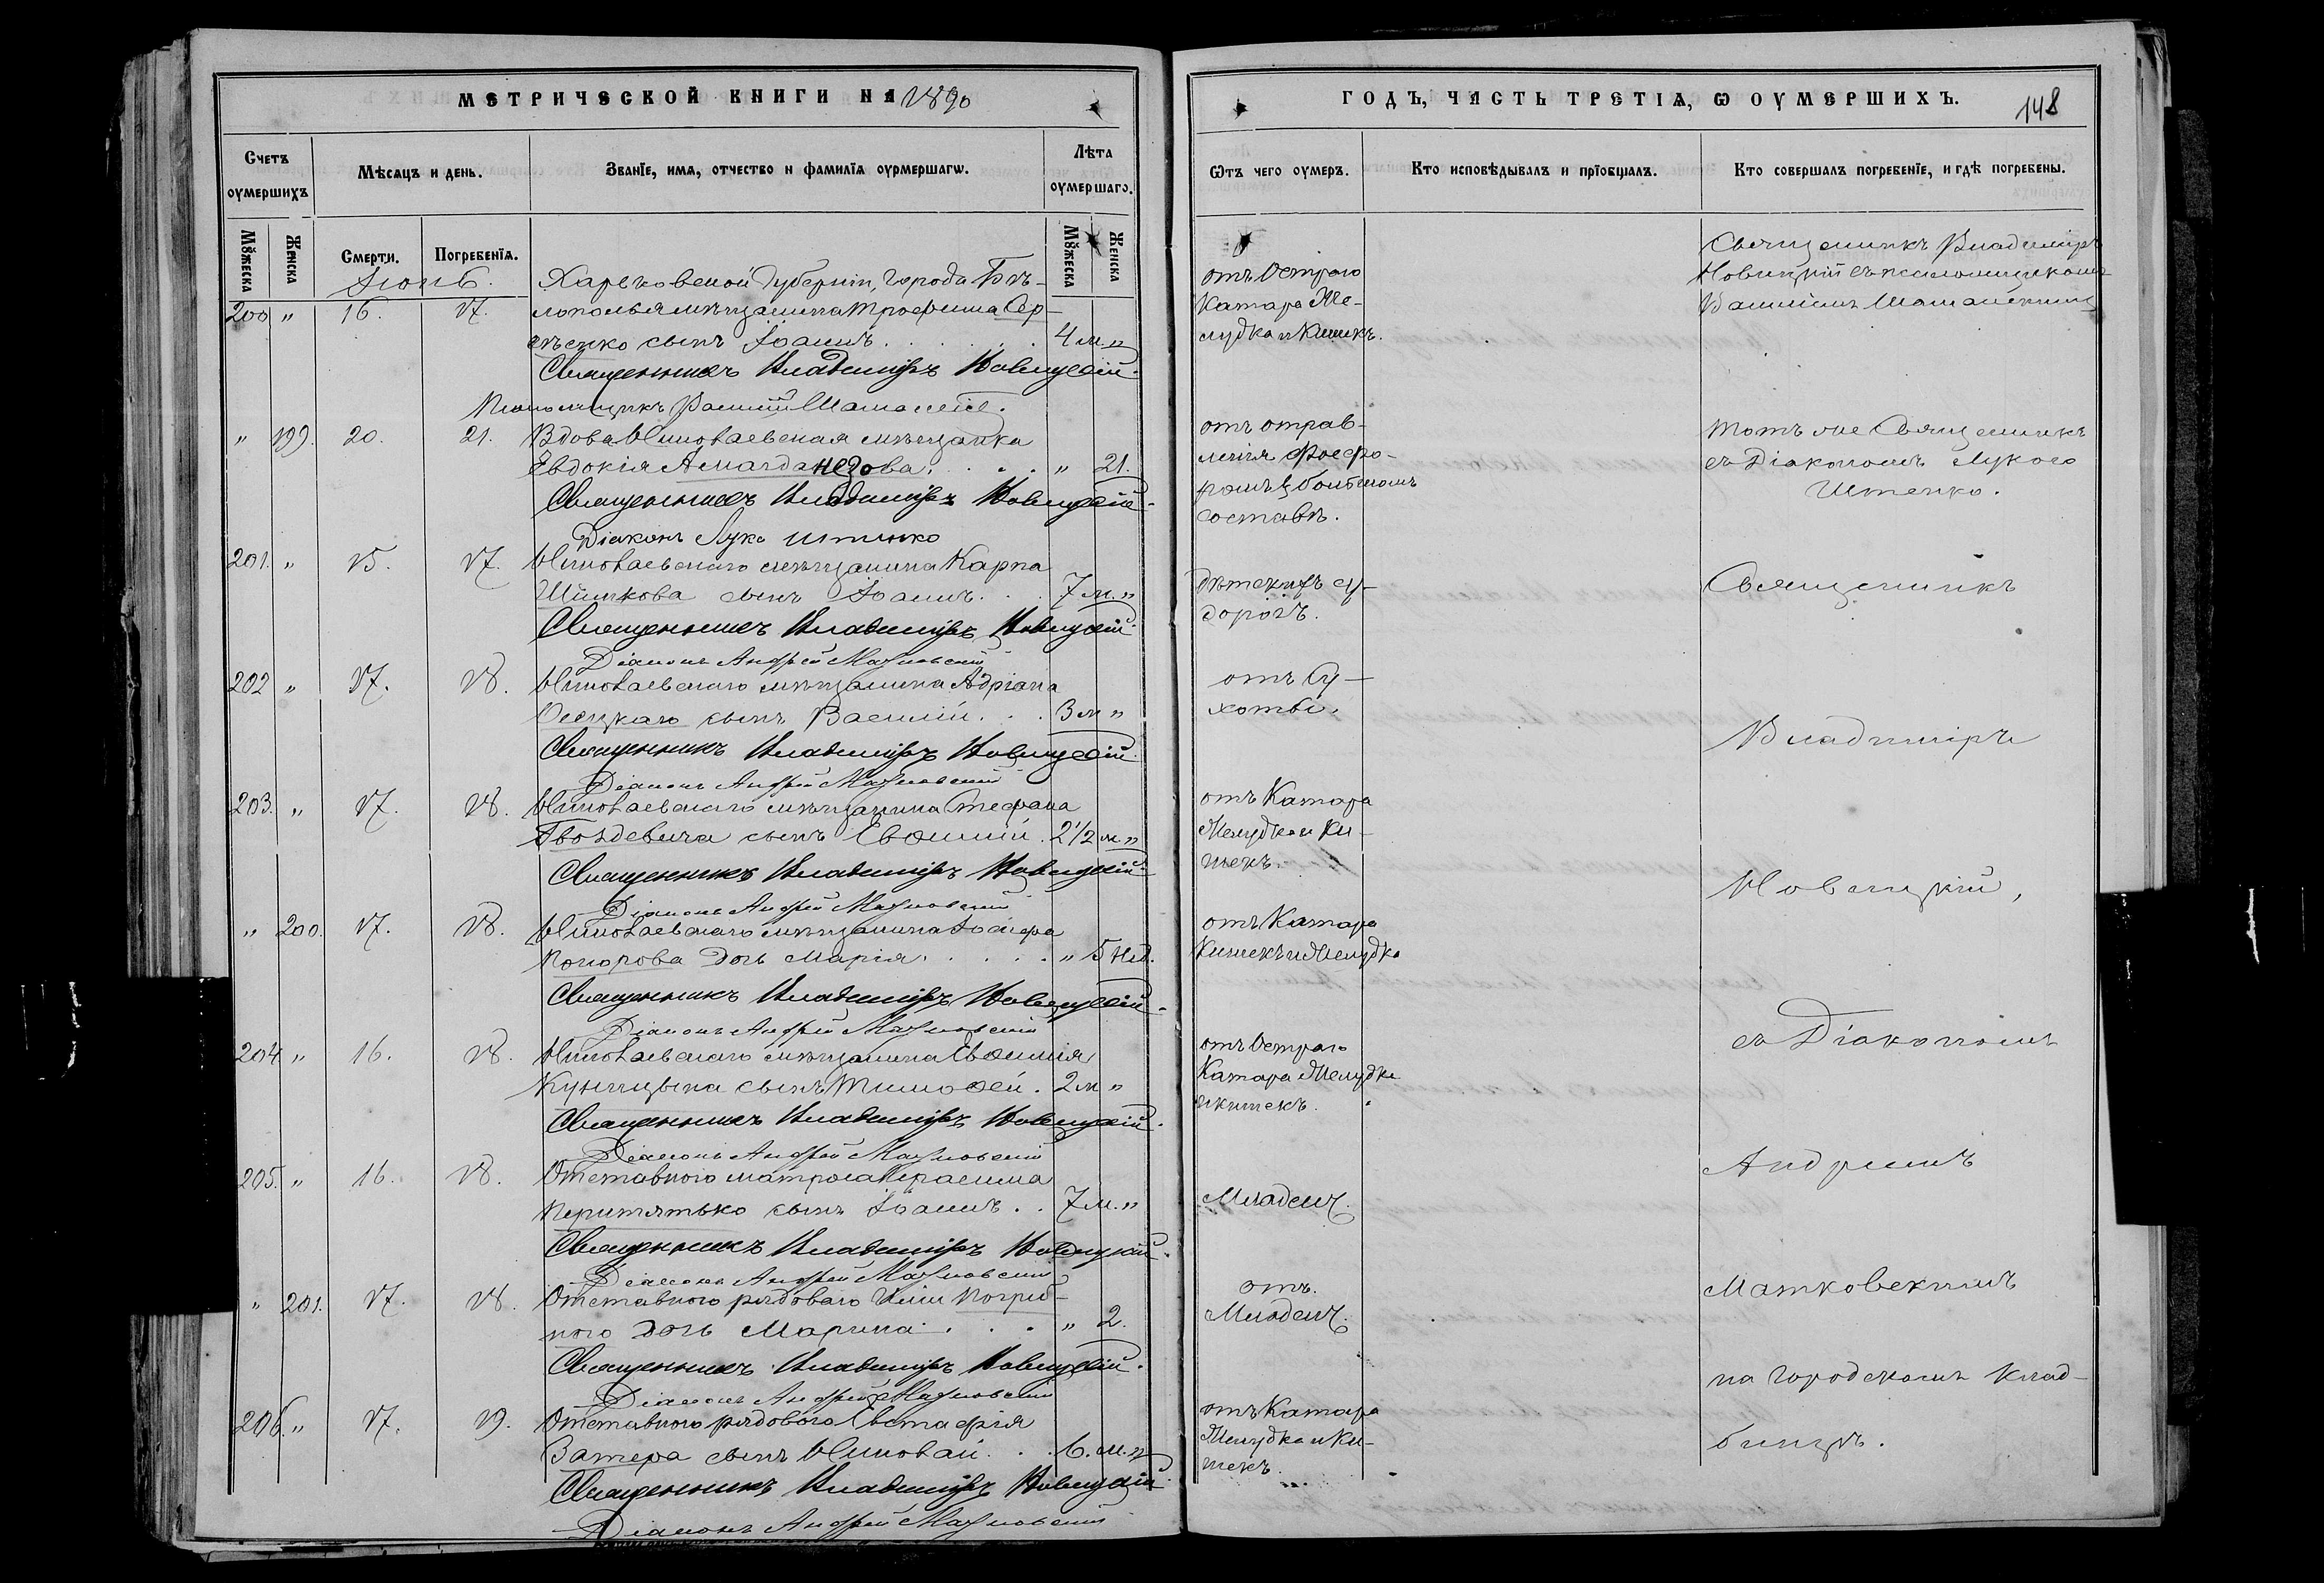 МЕТРИЧЕСКОЙ КНИГИ НА 1890
ГОДЪ, ЧАСТЬ ТРЕТІѦ, Ѡ ОУМЕРШИХЪ.
148
Счетъ оумершихъ
Мѣсѧцъ и день.
Званїе, имѧ, отчество и фамилїѧ оурмершагѡ.
Лѣта оумершаго.
Мꙋжеска
Женска
Смерти.
Погребенїѧ.
Мꙋжеска
Женска
Ѿтъ чего оумеръ.
Кто исповѣдывалъ и прїобщалъ.
Кто совершалъ погребенїе, и гдѣ погребены.
Іюнь.
Харьковской Губерніи, города Бѣ-
200 " 16. 17. лополья мѣщанина Трофима Сер-
сынъ Іоаннъ. 4 м. "
отъ Остраго
Катара Же-
лудка и Кишекъ.
Священникъ Владиміръ
Новицкій съ псаломщикомъ
Священникъ Владиміръ Новицкій.
Псаломщикъ
" 199. 20. 21. Вдова Николаевская мѣщанка
Евдокія " 21.
отъ отрав-
ленія фосфо-
ромъ
составѣ.
Тотъ же Священникъ
съ Діакономъ Лукою
Штенко.
Священникъ Владиміръ Новицкій.
Діаконъ Лука Штенко
201. " 15. 17. Николаевскаго мѣщанина Карпа
Шишкова сынъ Іоаннъ. 7 м. "
Дѣтскихъ су-
дорогъ.
Священникъ
Священникъ Владиміръ Новицкій.
Діаконъ Андрей Матковскій
202 " 17. 18. Николаевскаго мѣщанина Адріана
Осецкаго сынъ Василій. 3 м "
отъ Су-
хотки.
Владиміръ
Священникъ Владиміръ Новицкій.
Діаконъ Андрей Матковскій
203. " 17. 18. Николаевскаго мѣщанина Стефана
Гвоздевича сынъ Евѳимій. 2 1/2 м. "
отъ Катара
Желудка и Ки-
шекъ.
Священникъ Владиміръ Новицкій.
Новицкій,
Діаконъ Андрей Матковскій
" 200. 17. 18. Николаевскаго мѣщанина Іосифа
дочь Марія. " 5 нед.
отъ Катара
Кишекъ и Желудка
Священникъ Владиміръ Новицкій.
Діаконъ Андрей Матковскій
съ Діакономъ
204 " 16. 18. Николаевскаго мѣщанина Евѳимія
сынъ Тимоѳей. 2 м "
отъ Остраго
Катара Желудка
и кишекъ.
Священникъ Владиміръ Новицкій.
Діаконъ Андрей Матковскій
Андреемъ
205. " 16. 18. Отставного матроса Герасима
сынъ Іоаннъ. 7 м. "
Младенч.
Священникъ Владиміръ Новицкій.
Діаконъ Андрей Матковскій
Матковскимъ
" 201. 17. 18. Отставного рядоваго Погреб-
ного дочь Марина. " 2.
отъ
Младенч.
Священникъ Владиміръ Новицкій.
на городскомъ клад-
Діаконъ Андрей Матковскій
206. " 17. 19. Отставного рядового Евстафія
Ватера сынъ Николай. 6. м. "
отъ Катара
Желудка и Ки-
шекъ.
бищѣ.
Священникъ Владиміръ Новицкій.
Діаконъ Андрей Матковскій